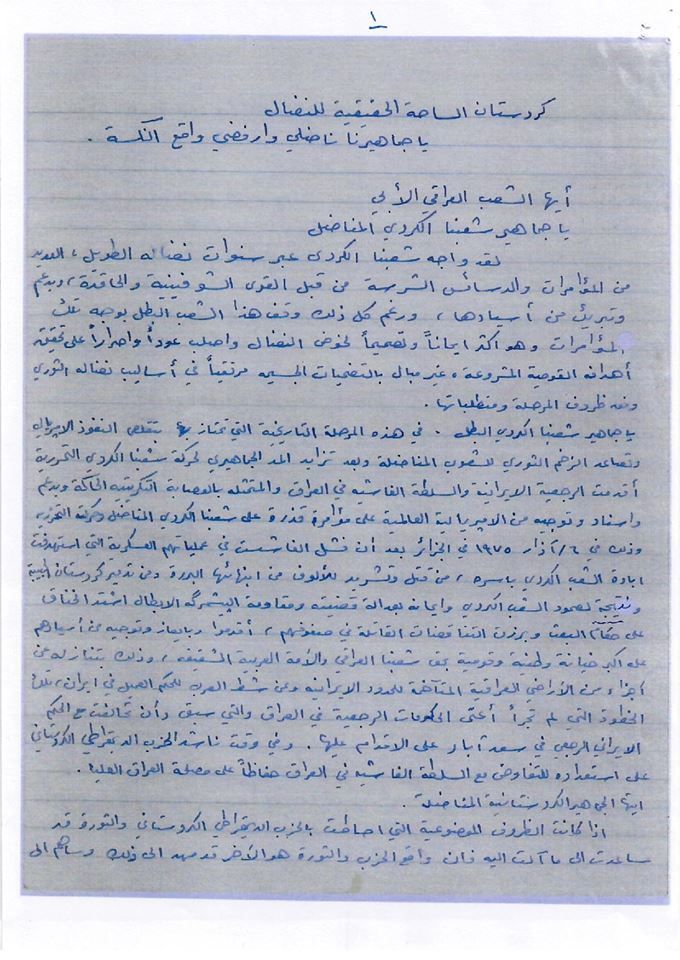 ١
كردستان الساحة الحقيقية للنضال
يا جماهيرنا ناضلي وارفضي واقع النكسة .
أيها الشعب العراقي الأبي
يا جماهير شعبنا الكردي المناضل
لقد واجه شعبنا الكردي عبر سنوات نضاله الطويل ، العديد
من المؤامرات والدسائس الشرسة من قبل القوى الشوفينية والحاقدة ، وبدعم
وتبريك من أسيادها ، ورغم كل ذلك وقف هذا الشعب البطل بوجه تلك
المؤامرات وهو اكثر ايماناً وتصميماً لخوض النضال واصلب عوداً واصراراً على تحقيق
أهدافه القومية المشروعة ، غير مبال بالتضحيات الجسيمه مرتقياً في أساليب نضاله الثوري
وفق ظروف المرحلة ومتطلباتها .
يا جماهير شعبنا الكردي البطل . في هذه المرحلة التاريخية التي تمتاز بها بتقلص النفوذ الامبريالي
وتصاعد الزخم الثوري للشعوب المناضلة وبعد تزايد المد الجماهيري لحركة شعبنا الكردي التحررية
أقدمت الرجعية الايرانية والسلطة الفاشيه في العراق والمتمثله بالعصابة التكريتيه الحاكمة وبدعم
واسناد وتوجيه من الامبريالية العالمية على مؤامرة قذرة على شعبنا الكردي المناضل وحركته التحررية
وذلك في ٦/ آذار ١٩٧٥ في الجزائر بعد أن فشل الفاشست في عملياتهم العسكرية التي استهدفت
ابادة الشعب الكردي باسره ، من قتل وتشريد للألوف من ابنائها البررة ومن تدمير كردستان الحبيبة
ونتيجة لصمود الشعب الكردي وايمانه بعدالة قضيته ومقاومة الپيشمرگه الابطال اشتد الخناق
على البعث وبرزت التناقضات القاتلة في صفوفهم ، أقدموا وبايعاز وتوجيه من أسيادهم
على اكبر خيانة وطنية وقومية بحق شعبنا العراقي والأمة العربية الشقيقه ، وذلك بتنازله عن
أجزاء من الأراضي العراقية المتآخمة للحدود الايرانيه وعن شط العرب للحكم العميل في ايران ، تلك
الخطوة التي لم تجرأ أعتى الحكومات الرجعية في العراق والتي سبق وأن تحالفت مع الحكم
الايراني الرجعي في سعد آباد على الاقدام عليها . وفي وقت ناشد الحزب الديمقراطي الكردستاني
على استعداده للتفاوض مع السلطة الفاشيه في العراق حفاظاً على مصلحة العراق العليا .
ايتها الجماهير الكردستانية المناضلة .
اذا كانت الظروف الموضوعية التي احاطت بالحزب الديمقراطي الكردستاني والثورة قد
ساعدت الى ما آلت اليه فان واقع الحزب والثورة هو الآخر قد مهد الى ذلك وساهم الى